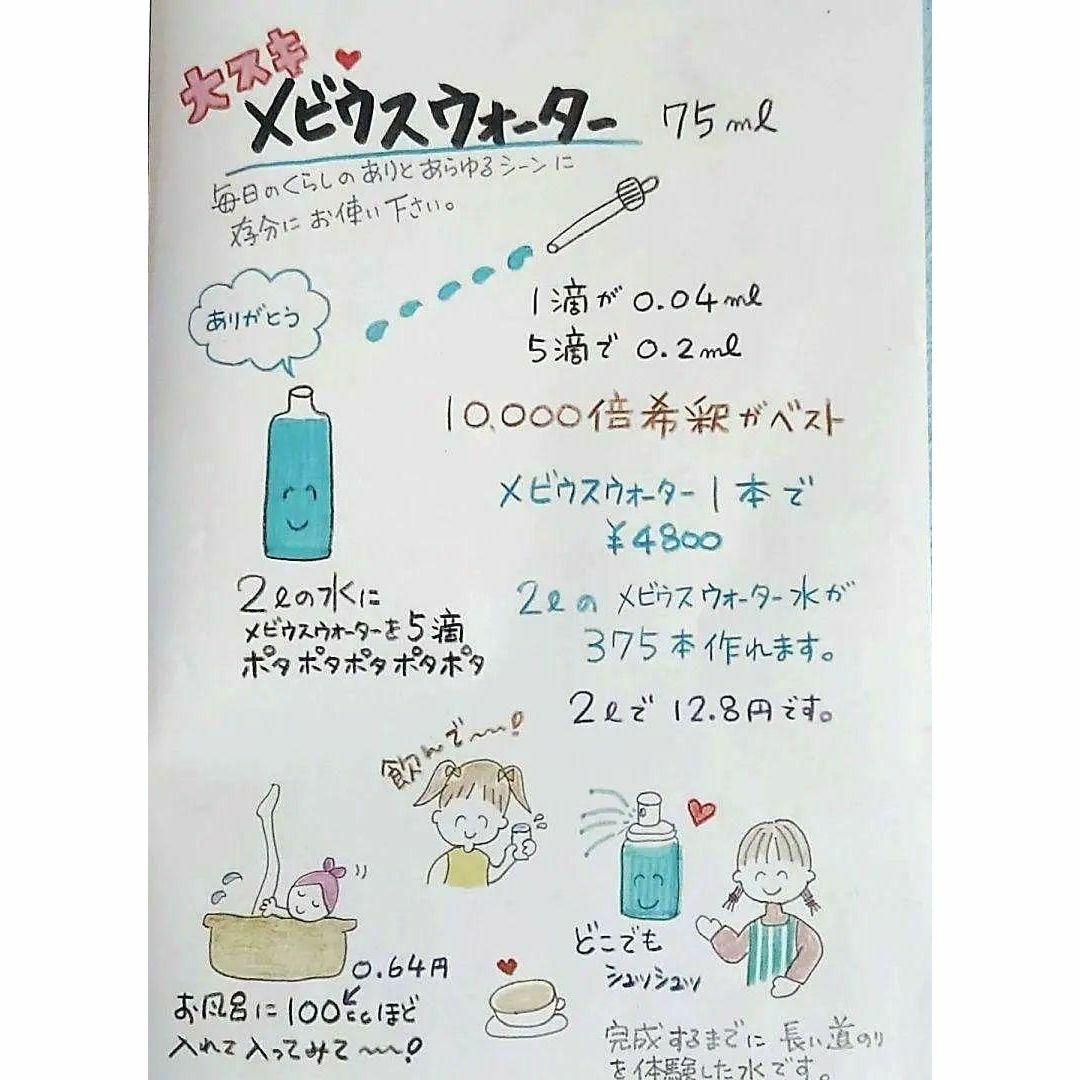 大スキ
メビウスウォーター 75ml
毎日のくらしのありとあらゆるシーンに
存分にお使い下さい。
ありがとう
1滴が0.04ml
5滴で0.2ml
10,000倍希釈がベスト
メビウスウォーター1本で
¥4800
2lの水に
メビウスウォーターを5滴
ポタポタポタポタポタ
2lのメビウスウォーター水が
375本作れます。
2lで12.8円です。
飲んで〜〜!
どこでも
シュッシュッ
0.64円
お風呂に100ccほど
入れて入ってみて〜〜!
完成するまでに長い道のり
を体験した水です。